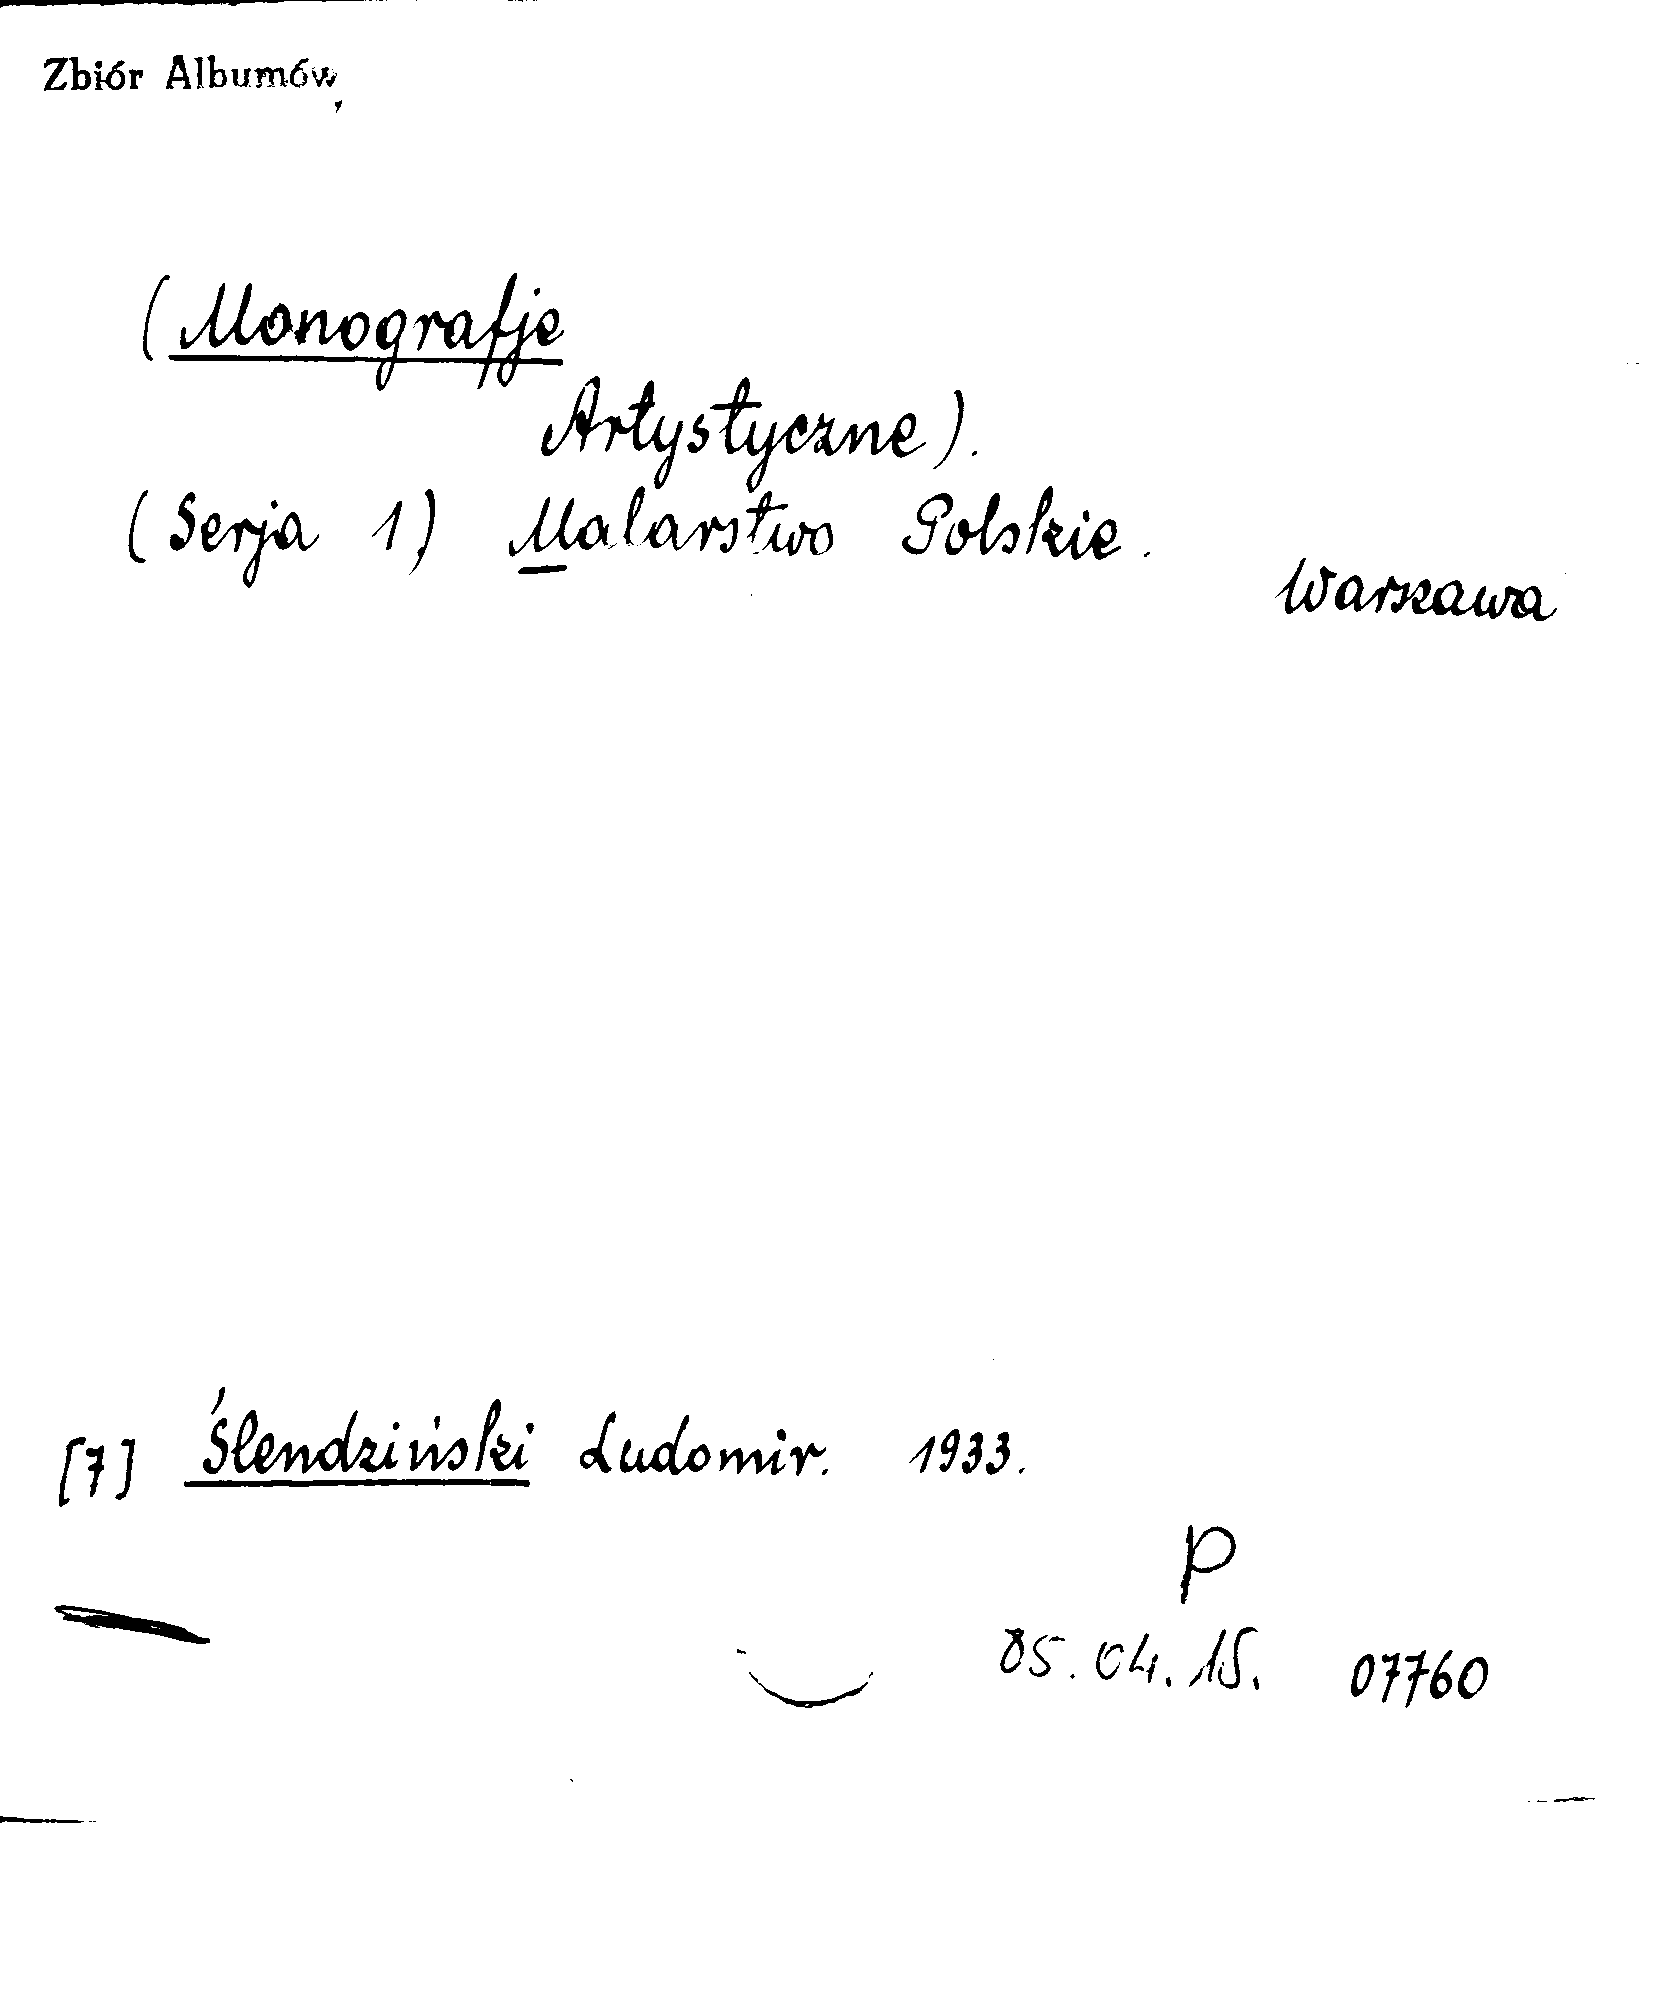 Zbiór Albumów
(Monografje
Artystyczne).
(Serja 1) Malarstwo Polskie.
Warszawa
[7] Ślendziński Ludomir. 1933.
P
85.04.15. 07760